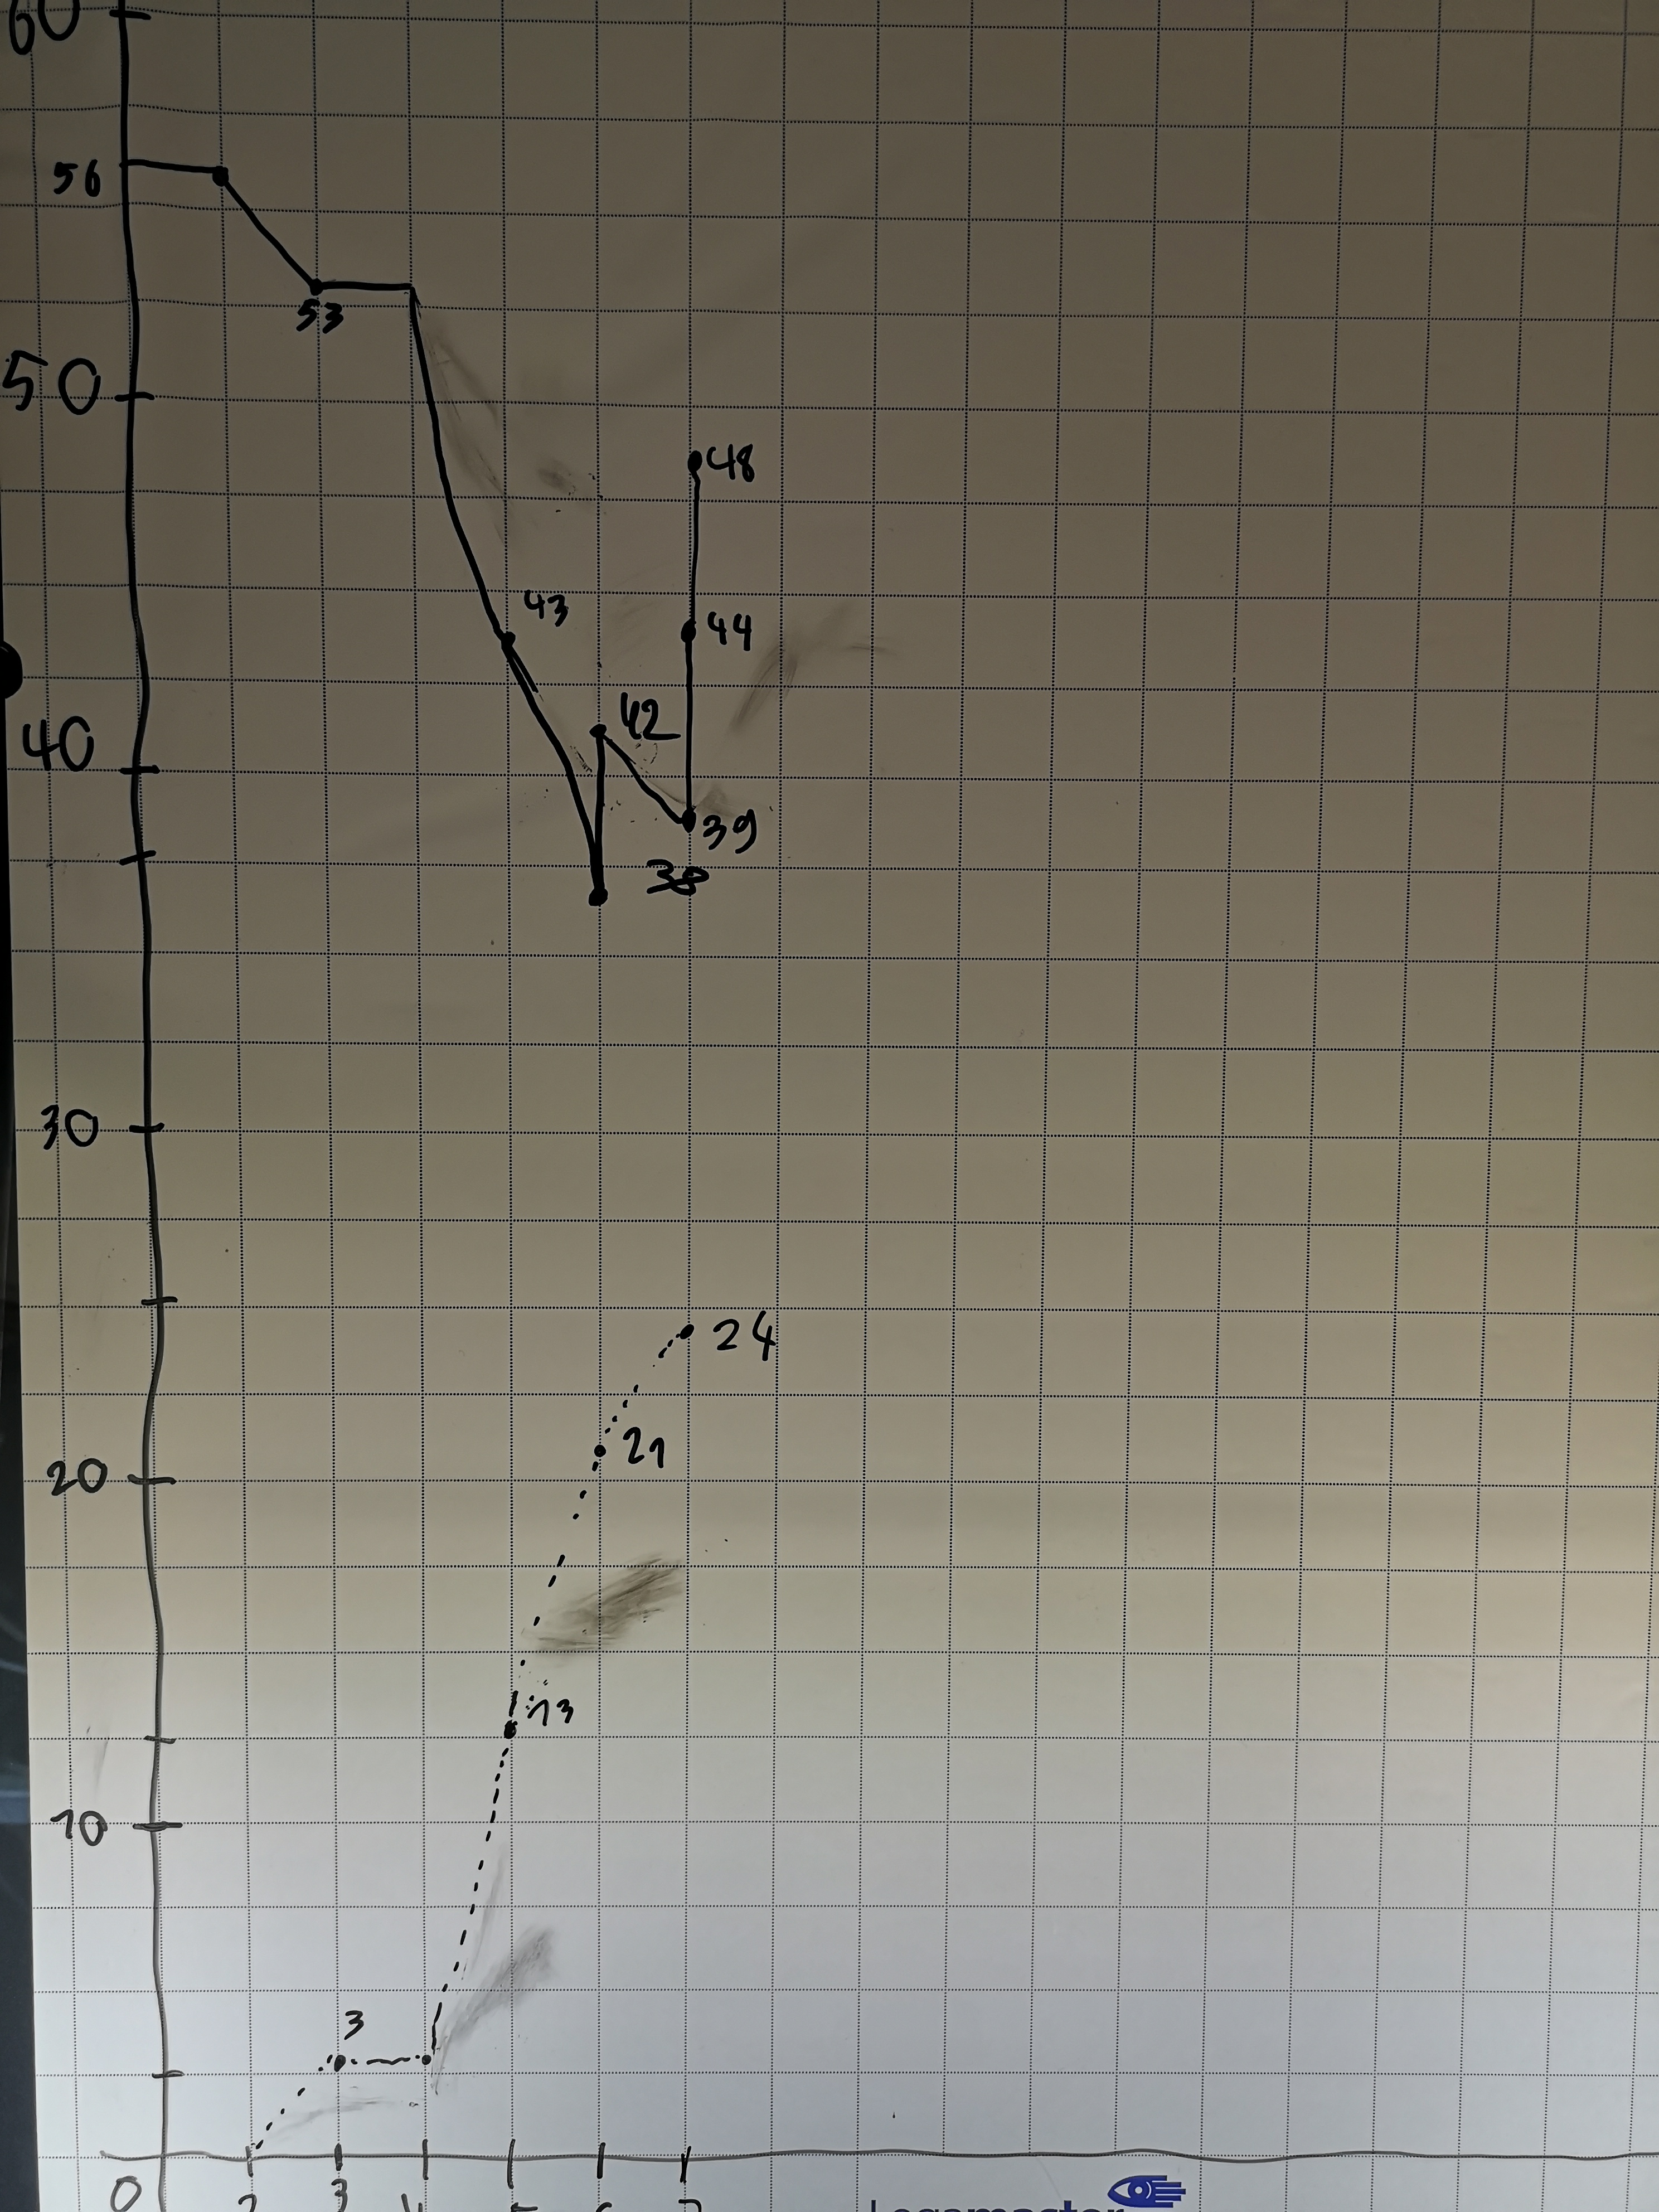 60
56
53
50
48
43
44
42
40
39
38
30
24
21
20
13
10
3
0 2 3 4 5 6 7
Legamaster